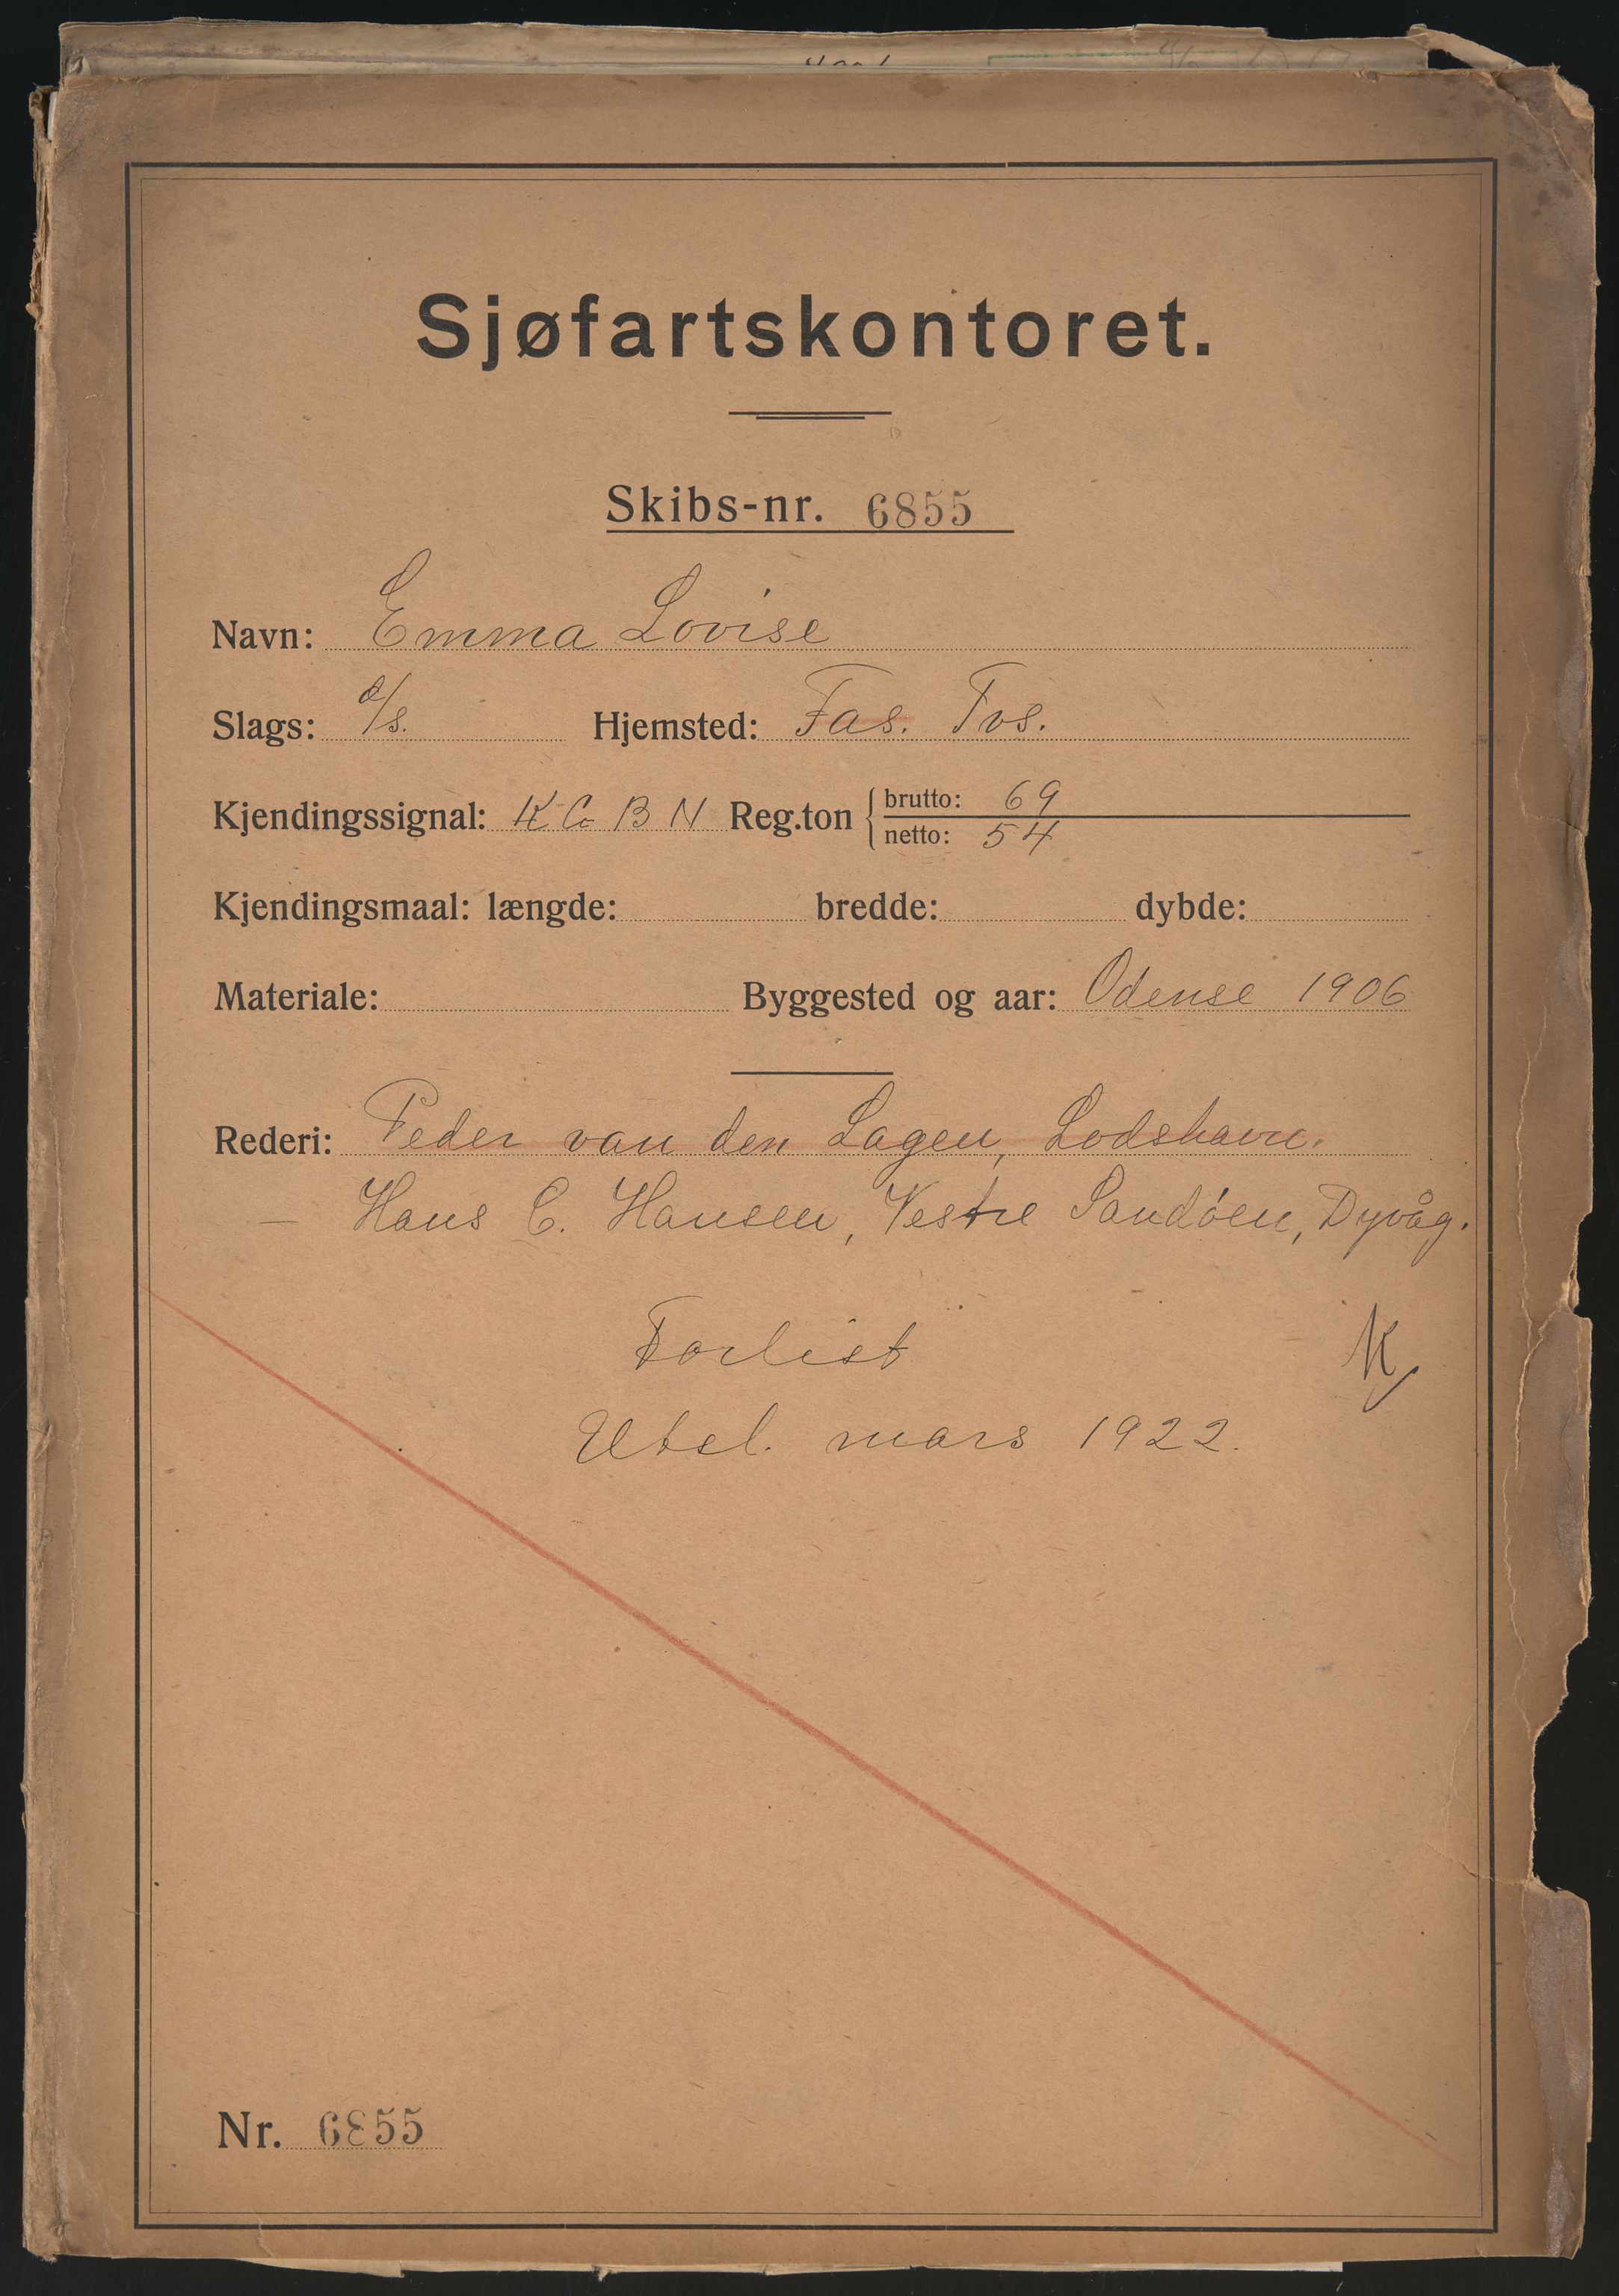 Sjøfartskontoret.
Skibs-nr. 6855
Navn: Emma Lovise
Slags: s/s. Hjemsted: Fas. Tvs.
Kjendingssignal: K C B N Reg.ton brutto: 69
netto: 54
Kjendingsmaal: længde: bredde: dybde:
Materiale: Byggested og aar: Odense 1906
Rederi: Peder van den Lagen, Lodshavn.
— Hans C. Hansen, Vestre Sandöen, Dyvåg.
Forlist
K
Utsl. mars 1922.
Nr. 6855